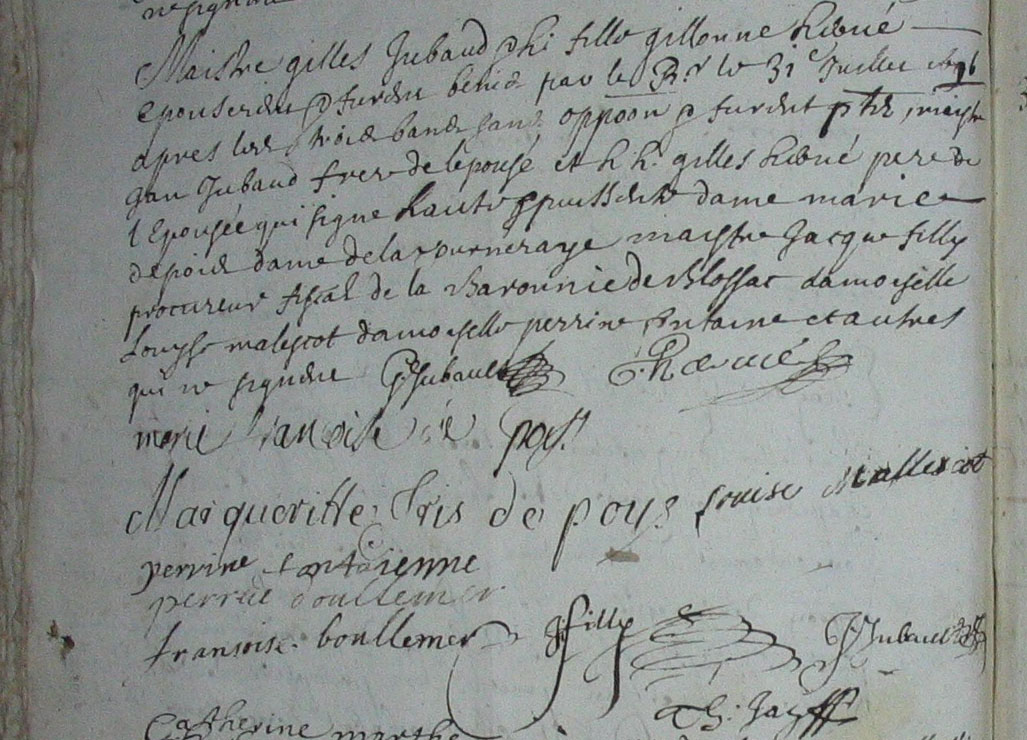 ne signer
Maistre gilles Jubaud & h. fille gillonne hervé
epouserent & furent beniz par le Rr le 31e Juillet
apres les trois bans sans oppoon & furent maistre
Jan Jubaud frere de l'epousé et h.h. gilles hervé pere de
l'Epousée qui signe haute & puissente dame marie
depoix dame de la maistre Jacque filly
procureur fiscal de la Baronnie de Blossac damoiselle
Louyse malescot damoiselle perrine fontaine et autres
qui ne signent G Jubault G. haerué
marie franoise de pois
Margueritte Iris de poys Louise Mallescot
perrine fontaienne
perrine boullemer
fransoise boullemer J filly J Jubault
Catherine marthe